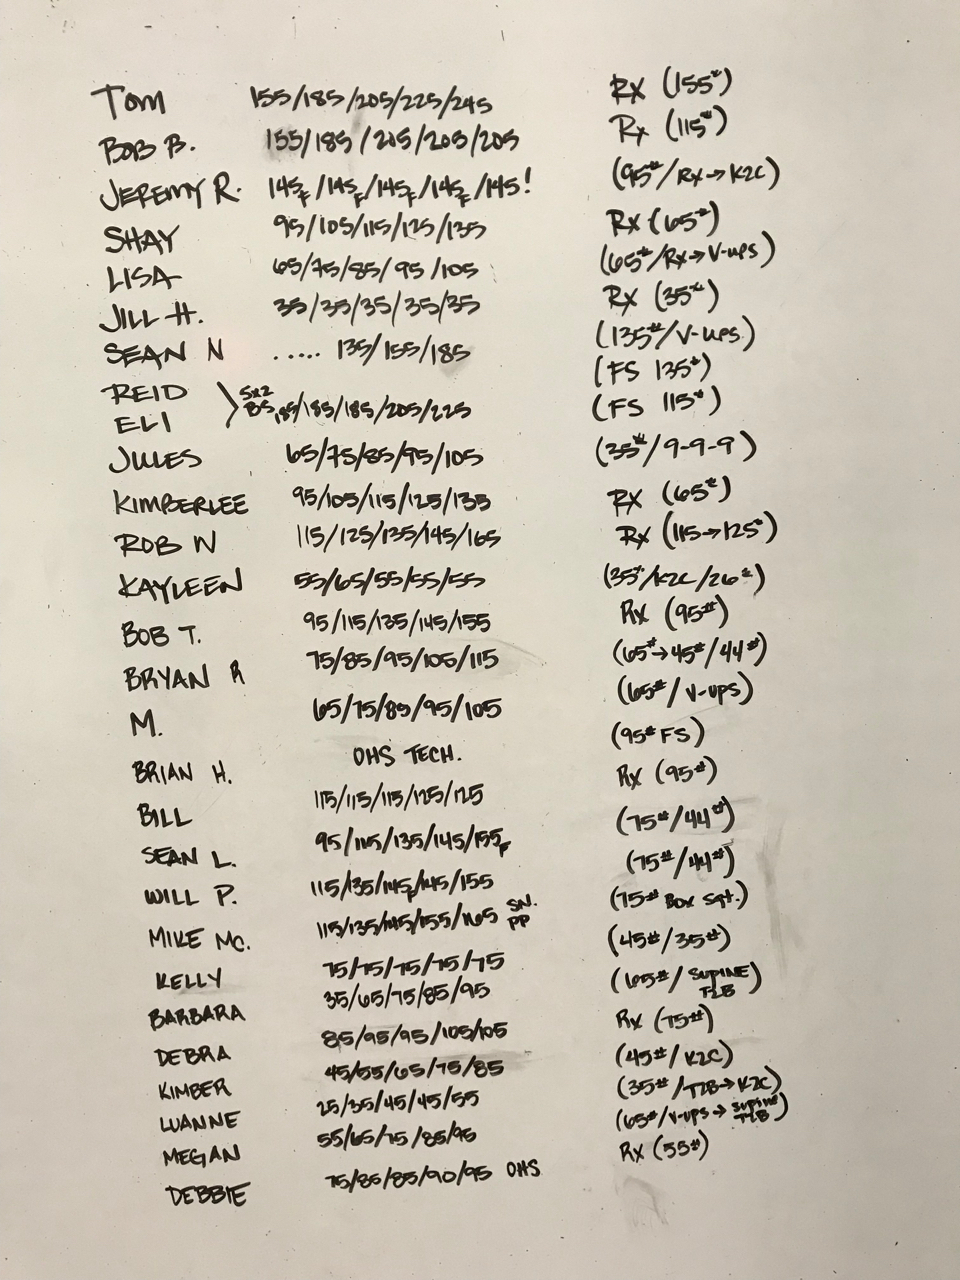 TOM 155/185/205/225/245 RX (155#)
BOB B. 155/185/205/205/205 Rx (115#)
JEREMY R. 145F/145F/145F/145F/145! (95#/RX→K2C)
SHAY 95/105/115/125/135 RX (65#)
LISA 65/75/85/95/105 (65#/RX→V-UPS)
JILL H. 35/35/35/35/35 RX (35#)
SEAN N ..... 135/155/185 (135#/V-UPS)
REID (FS 135#)
5x2 BS 185/185/185/205/225
ELI (FS 115#)
JULES 65/75/85/95/105 (35#/9-9-9)
KIMBERLEE 95/105/115/125/135 RX (65#)
ROB W 115/125/135/145/165 RX (115→125#)
KAYLEEN 55/65/55/55/55 (35#/K2C/26#)
BOB T. 95/115/135/145/155 RX (95#)
BRYAN R 75/85/95/105/115 (65#→45#/44#)
M. 65/75/85/95/105 (65#/V-UPS)
BRIAN H. OHS TECH. (95# FS)
BILL 115/115/115/125/125 RX (95#)
SEAN L. 95/115/135/145/155F (75#/44#)
WILL P. 115/135/145F/145/155 (75#/44#)
MIKE MC. 115/135/145/155/165 SN. PP (75# BOX SQT.)
KELLY 75/75/75/75/75 (45#/35#)
BARBARA 35/65/75/85/95 (65#/SUPINE T2B)
DEBRA 85/95/95/105/105 RX (75#)
KIMBER 45/55/65/75/85 (45#/K2C)
LUANNE 25/35/45/45/55 (35#/T2B→K2C)
MEGAN 55/65/75/85/95 (65#/V-UPS→SUPINE T2B)
DEBBIE 75/85/85/90/95 OHS RX (55#)